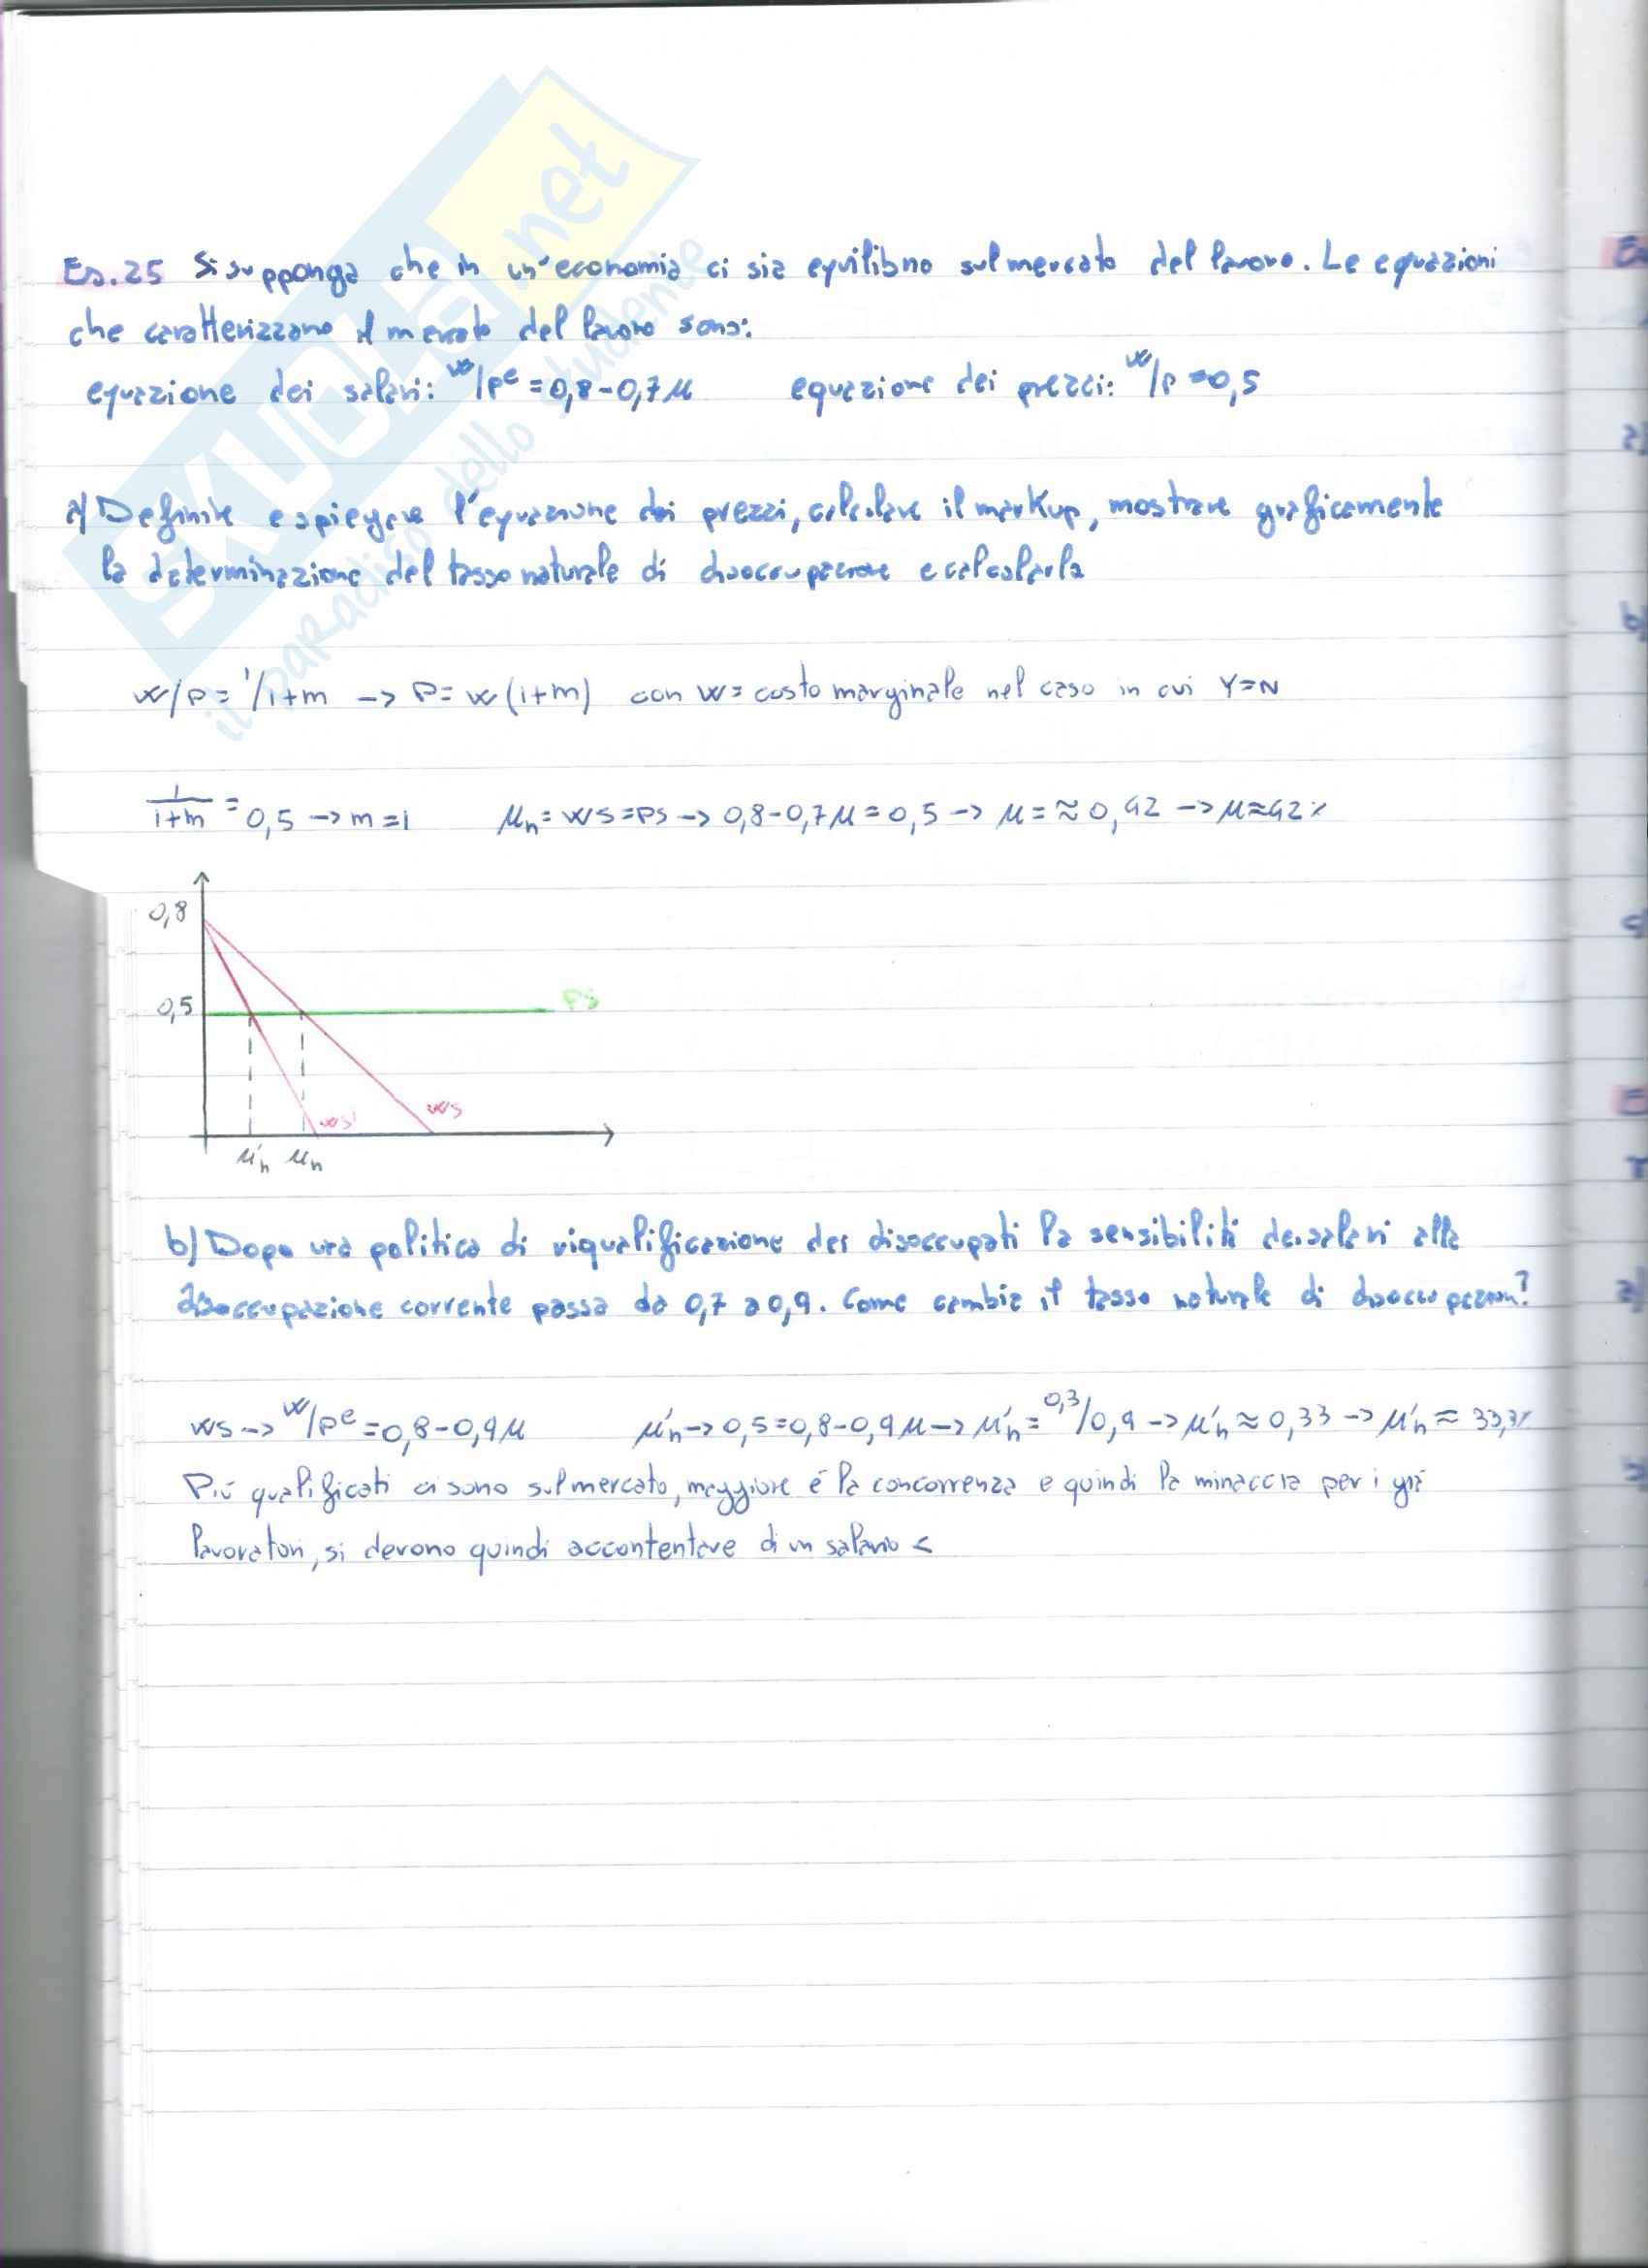 SKUOLA.net
il paradiso dello studente
Es.25 Si supponga che in un'economia ci sia equilibrio sul mercato del lavoro. Le equazioni
che caratterizzano il mercato del lavoro sono:
equazione dei salari: W/Pe = 0,8-0,7μ equazione dei prezzi: W/P = 0,5
a) Definite e spiegare l'equazione dei prezzi, calcolare il markup, mostrare graficamente
la determinazione del tasso naturale di disoccupazione e calcolarla
W/P = 1/1+m -> P = W(1+m) con W = costo marginale nel caso in cui Y=N
1/1+m = 0,5 -> m = 1 μn = WS = PS -> 0,8-0,7μ = 0,5 -> μ = ≈ 0,42 -> μ≈42%
0,8
0,5
PS
WS' WS
μ'n μn
b) Dopo una politica di riqualificazione dei disoccupati la sensibilità dei salari alla
disoccupazione corrente passa da 0,7 a 0,9. Come cambia il tasso naturale di disoccupazione?
WS -> W/Pe = 0,8-0,9μ μ'n -> 0,5 = 0,8-0,9μ -> μ'n = 0,3/0,9 -> μ'n ≈ 0,33 -> μ'n ≈ 33,3%
Più qualificati ci sono sul mercato, maggiore é la concorrenza e quindi la minaccia per i già
lavoratori, si devono quindi accontentare di un salario <